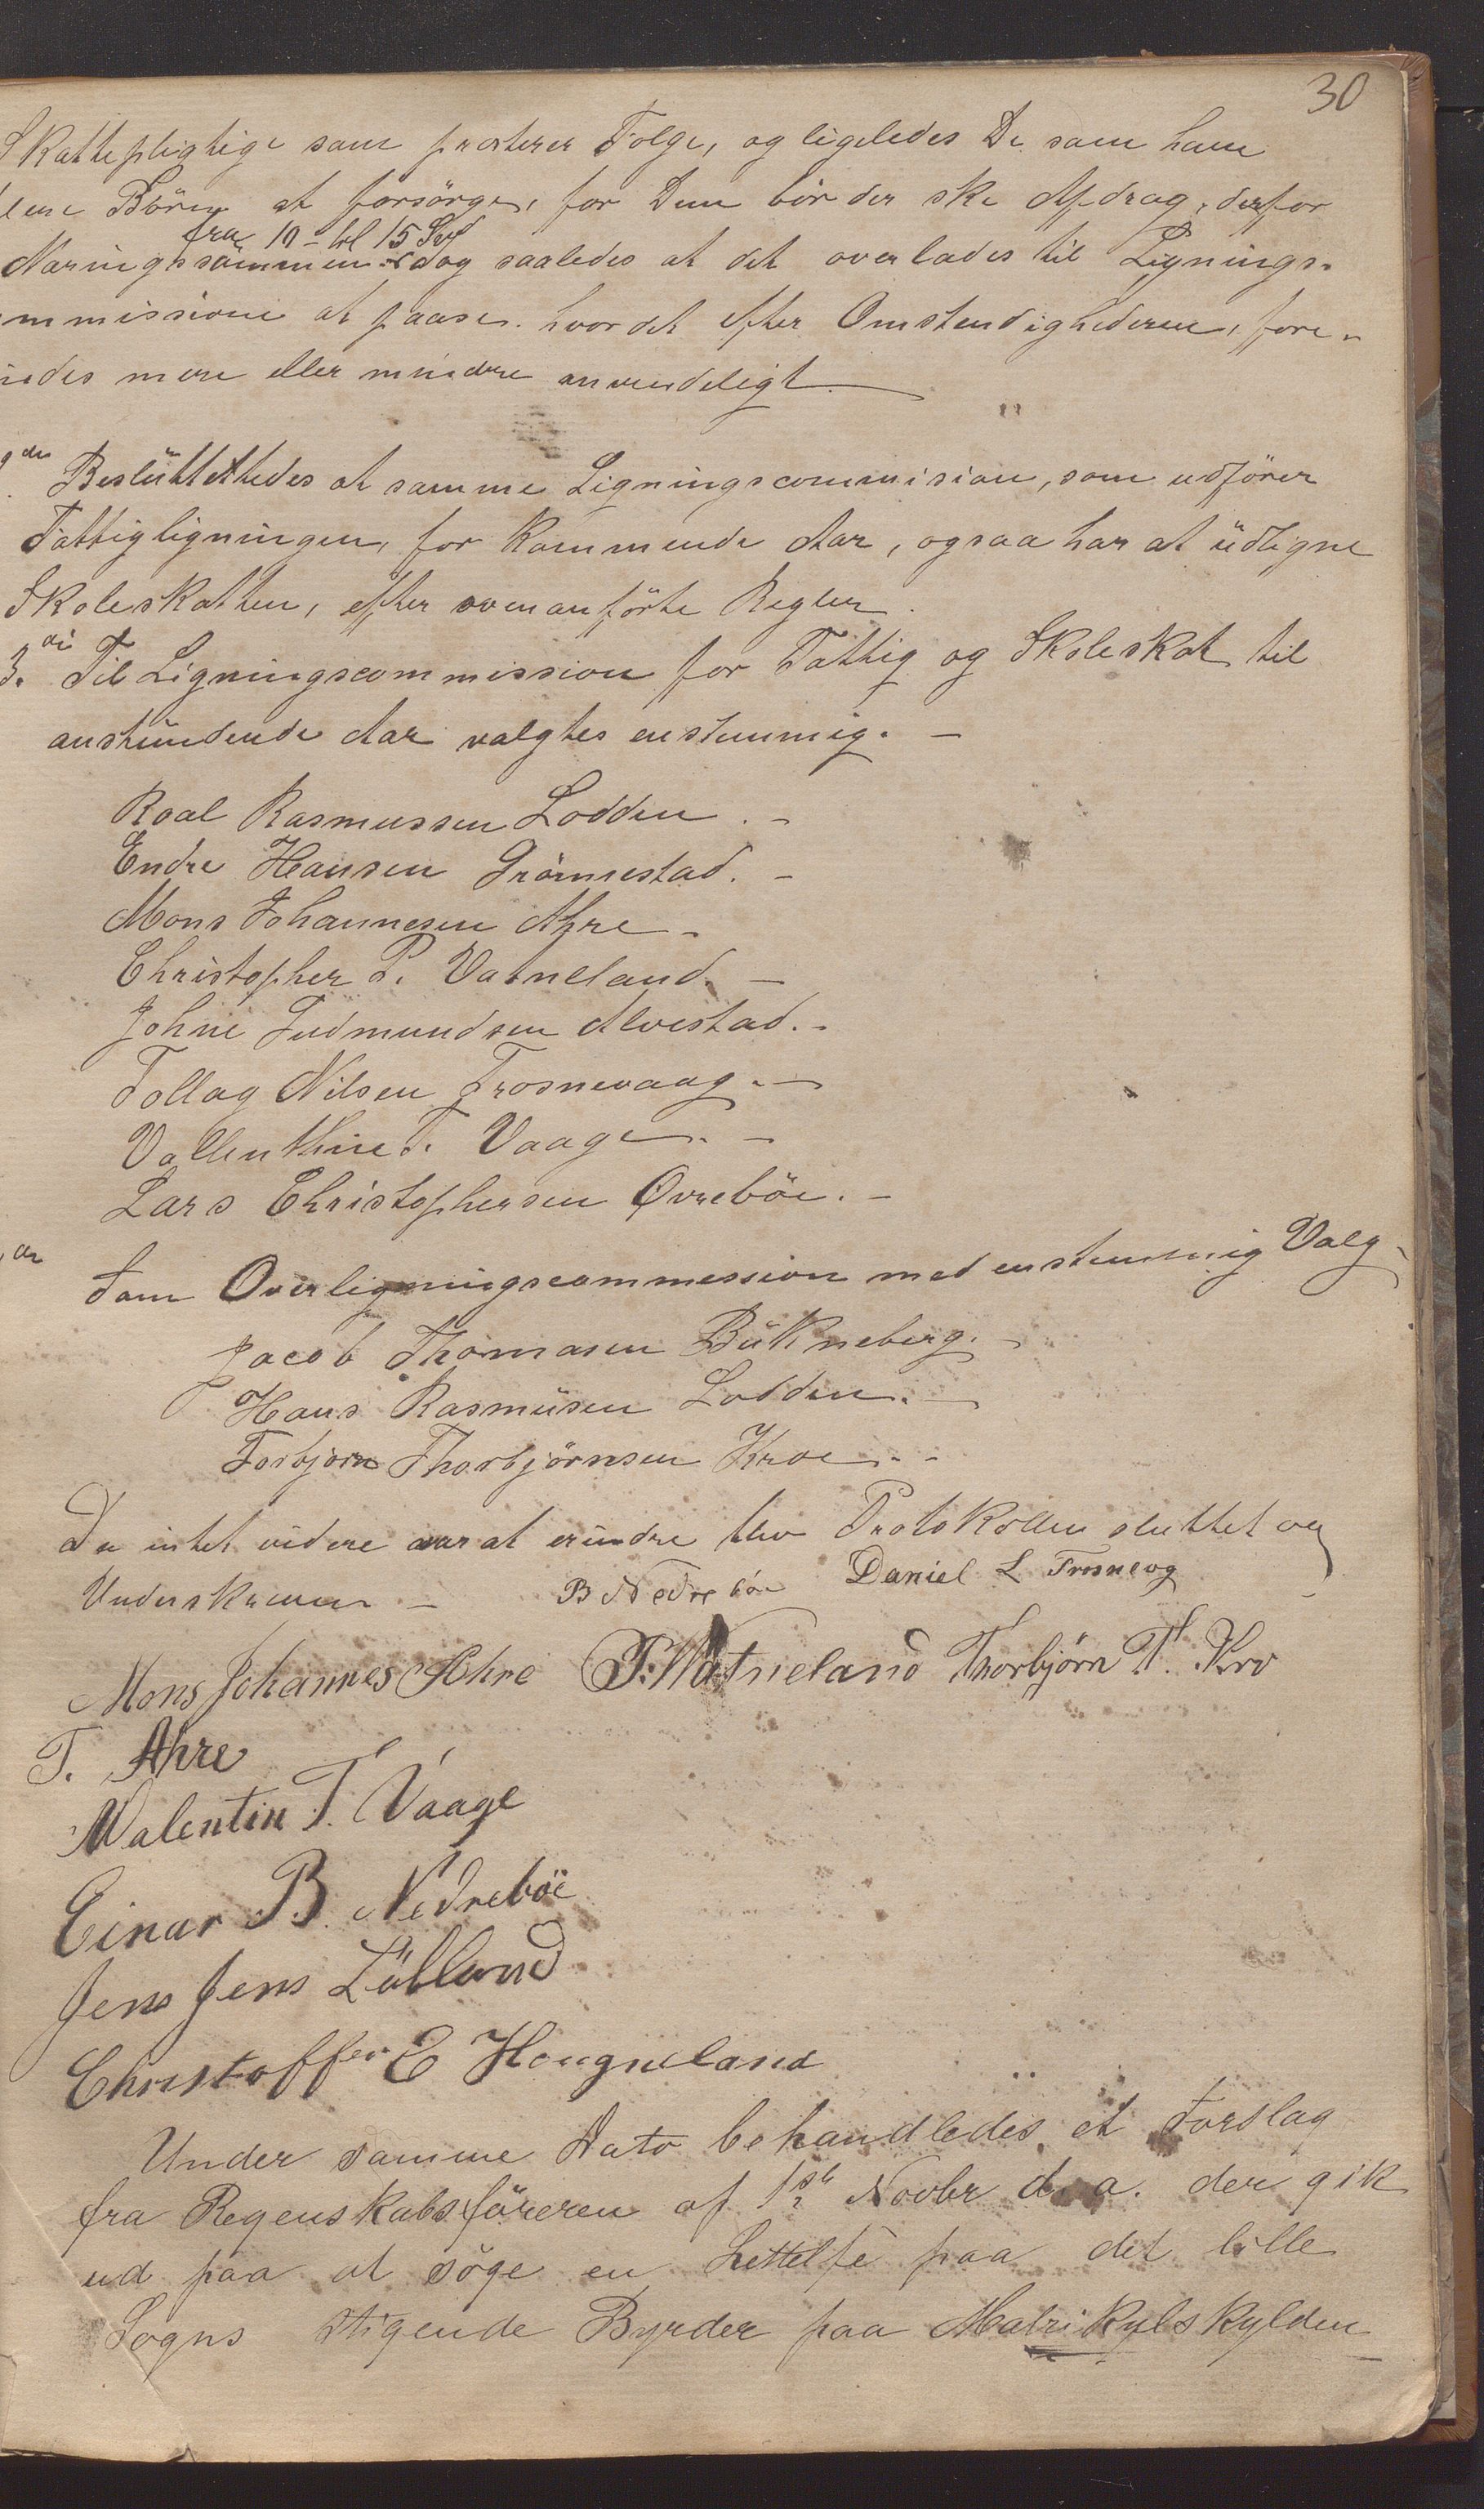 30
Skattepligtige som præsterer Følge, og ligeledes De som have
Børn at forsørge, for Dem bør der ske Afdrag, derfor
fra 10 - til 15 Svd
Næringssummen dog saaledes at det overlades til Lignings-
mmissione at paase. hvor det efter Omstendighederne, fore-
indes mere eller mindre anvendeligt
den Besluttettedes at samme Ligningscommision, som udfører
Fattigligningen, for kommende Aar, ogsaa har at udligne
Skoleskatten, efter ovenanførte Regler.
3. di Til Ligningscommission for Fattig og Skoleskat til
anstundende Aar valgtes enstemmig. -
Roal Rasmussen Lodden. -
Endre Hansen Grønnestad. -
Mons Johannesen Ahre -
Christopher P. Vatneland. -
Johne Gudmundsen Alvestad. -
Tollag Nilsen Trosnevaag. -
Vallenthine T. Vaage. -
Lars Christophersen Øvrebøe. -
de Som Overligningscommession med enstemmig Valg
Jacob Thomasen Bukneberg. -
Hans Rasmusen Lodden. -
Torbjorn Thorbjørnsen Kroe. -
Da intet videre var at erindre blev Protokollen sluttet og
Underskreven - B Nedrebøe Daniel L Trosnevog
Mons Johannes Ahre P. Vatneland Thorbjørn T. Kro
T. Ahre
Valentin T. Vaage
Einar B. Nedrebøe
Jens Jens Løllund
Christoffer E Hougneland
Under samme Dato behandledes et Forslag
fra Regenskabsføreren af 1ste Novbr d. a. der gik
ud paa at søge en Lettelse paa det lille
Sogns stigende Byrder paa Matrikylskylden